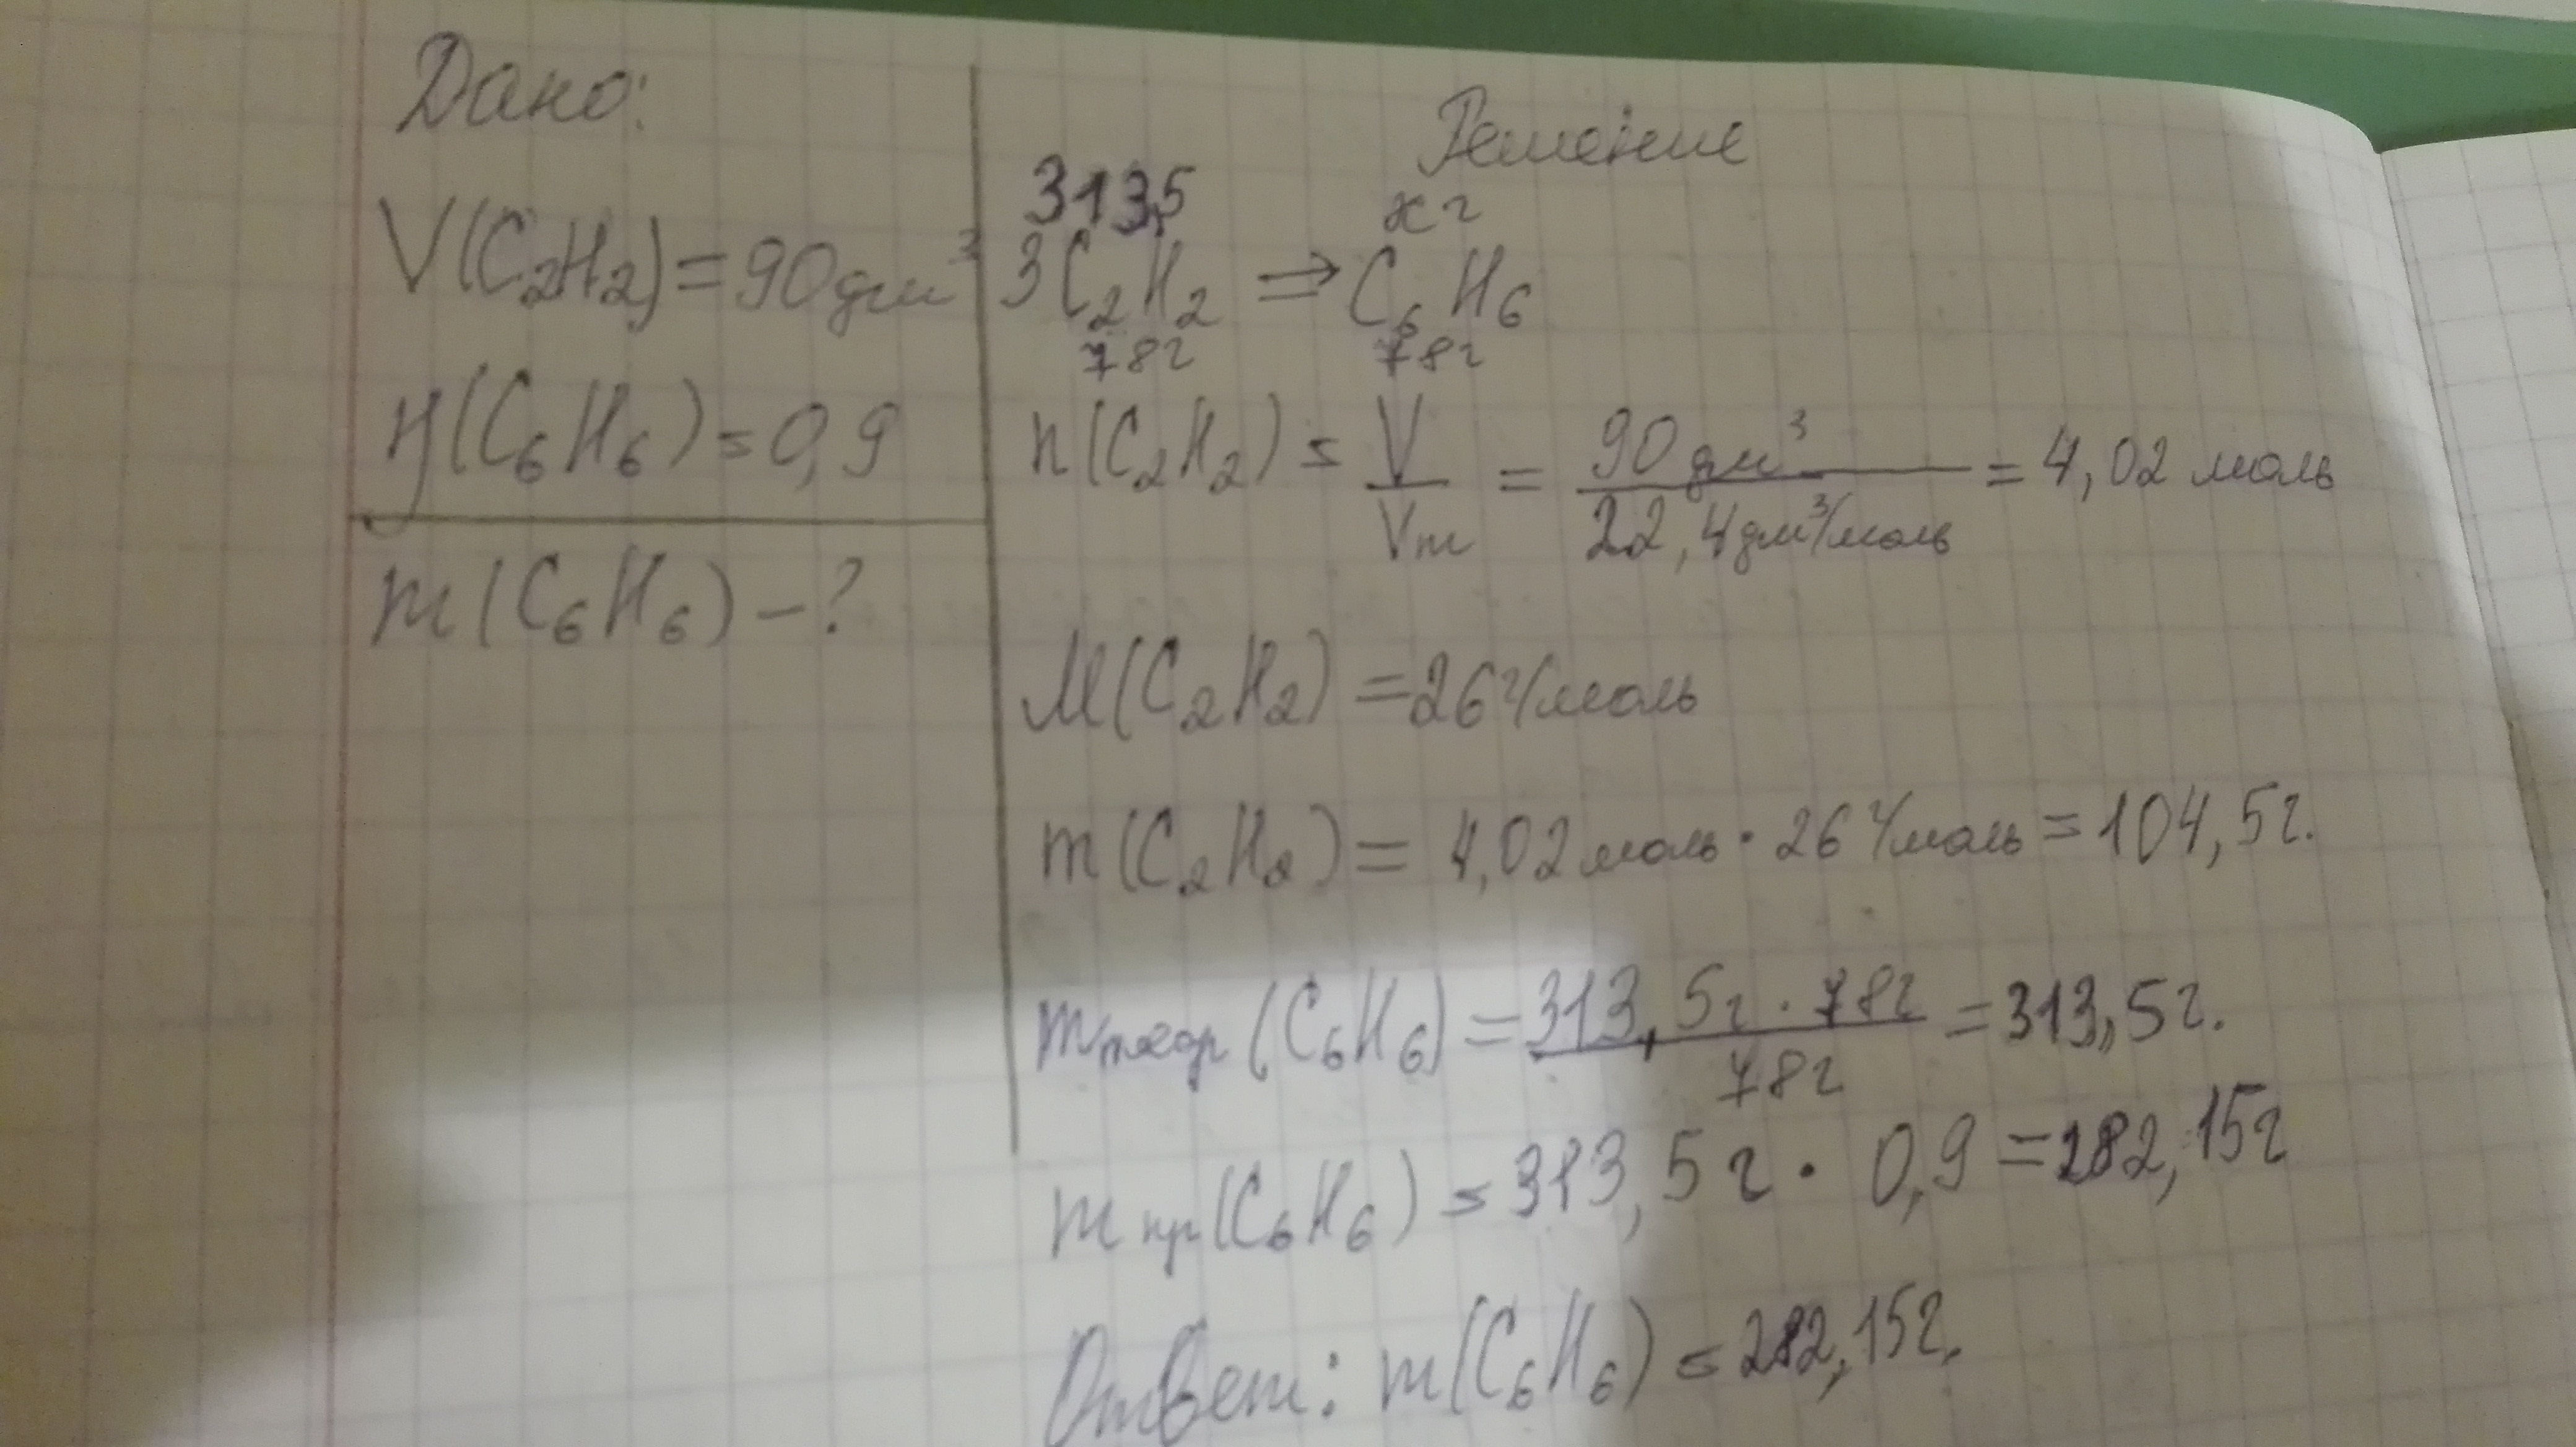 Дано:
V(C₂H₂)=90дм³
η(C₆H₆)=0,9
m(C₆H₆)-?
Решение
313,5 x г
3C₂H₂ ⇒ C₆H₆
78г 78г
n(C₂H₂) = V/Vm = 90дм³/22,4дм³/моль = 4,02 моль
M(C₂H₂) =26г/моль
m(C₂H₂) = 4,02моль·26г/моль=104,5г.
mтеор(C₆H₆)=313,5г·78г/78г=313,5г.
mпр(C₆H₆)=313,5г·0,9=282,15г
Ответ: m(C₆H₆)=282,15г.